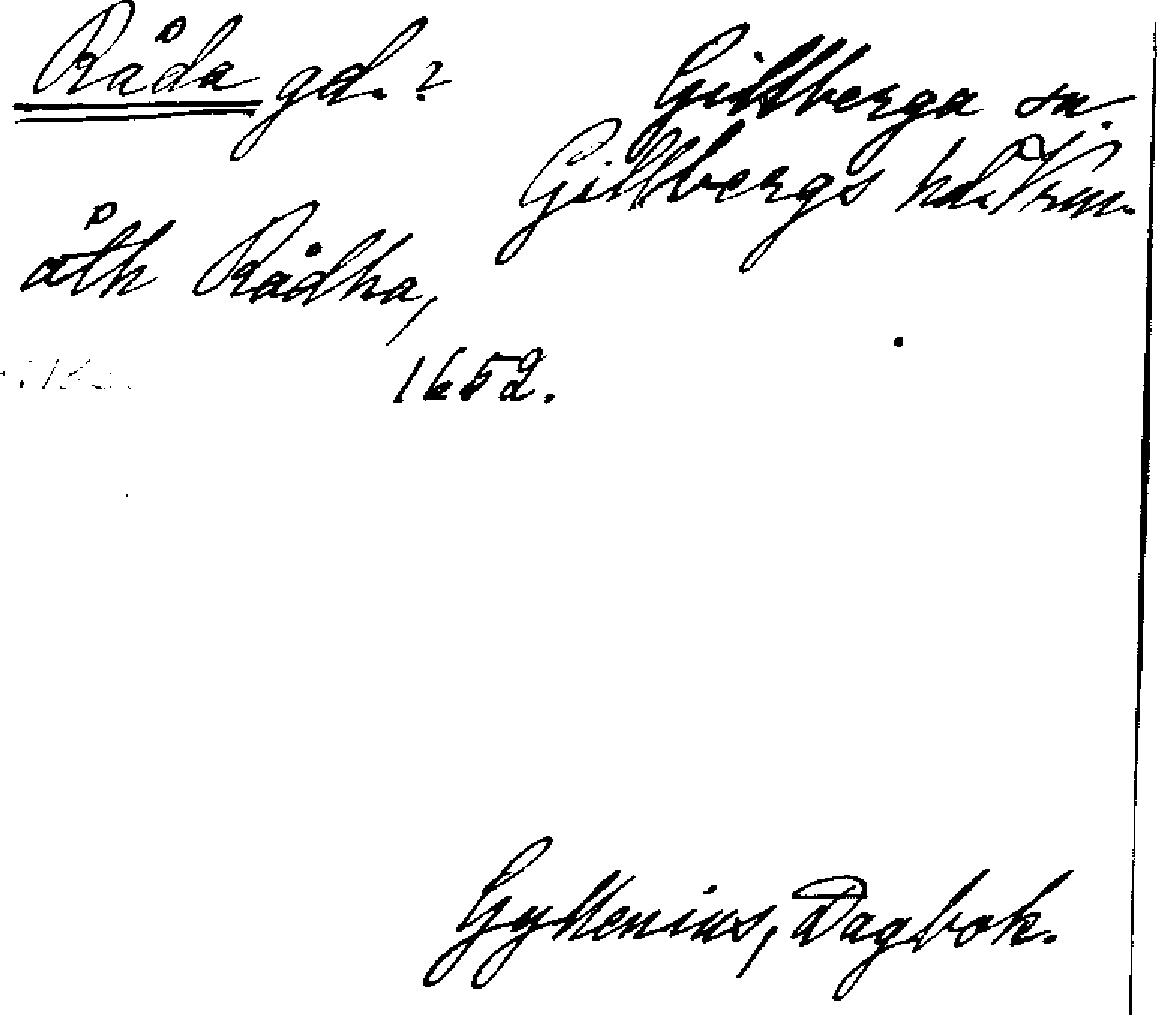 Råda gd.?
Gillberga sn.
Gillbergs hd. Vrm.
åth Rådha,
1652.
Gyllenius, Dagbok.